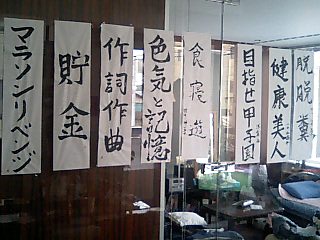 マラソンリベンジ
貯金
作詞作曲
色気と記憶
食寝遊
目指せ甲子園
健康美人
脱脱糞